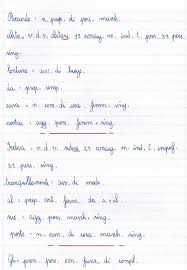 = n. prop. di pers. masch.
abita = v. d. v. abitare 1ª coniug. m. ind. t. pres. 3ª pers.
sing.
lontano = avv. di luogo.
da = prep. semp.
casa = n. com. di cosa femm. sing.
nostra = agg. poss. femm. sing.
= v. d. v. 2ª coniug. m. ind. t. imperf.
3ª pers. sing.
tranquillamente = avv. di modo.
al = prep. art. form. da a + il
suo = agg. poss. masch. sing.
posto = n. com. di cosa masch. sing.
Gli = pron. pers. con funz. di compl.